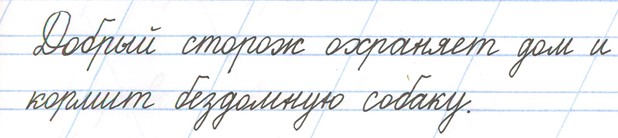 Добрый сторож охраняет дом и
кормит бездомную собаку.